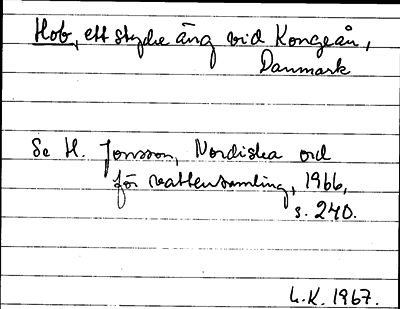 Hob, ett stycke äng vid Kongeån,
Danmark
Se H. Jonsson, Nordiska ord
för vattensamling, 1966,
s. 240.
L.K. 1967.